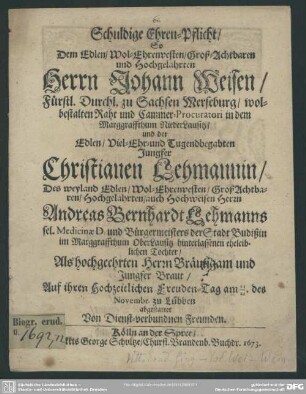 Schuldige Ehren-Pflicht/
So
Dem Edlen/ Wol-Ehrenvesten/ Groß-Achtbaren
und Hochgelahrten
Herrn Johann Weisen/
Fürstl. Durchl. zu Sachsen Merseburg/ wol-
bestalten Raht und Cammer-Procuratori in dem
Marggraffthum NiederLausitz/
und der
Edlen/ Viel-Ehr und Tugendbegabten
Jungfer
Christianen Lehmannin/
Des weyland Edlen/ Wol-Ehrenvesten/ GroßAchtba-
ren/ Hochgelahrten/ auch Hochweisen Herrn
Andreas Bernhardt Lehmanns
sel. Medicinæ D. und Bürgemeisters der Stadt Budißin
im Marggraffthum OberLausitz hinterlassenen eheleib-
lichen Tochter/
Als hochgeehrten Herrn Bräutigam und
Jungfer Braut/
Auf ihren Hochzeitlichen Freuden-Tag am des
Novembr. zu Lübben
abgestattet
Von Dienst-verbundnen Freunden.
Cölln an der Spree/
George Schultze/ Churfl. Brandenb. Buchdr. 1673.
Biogr. erud.
D
1692,